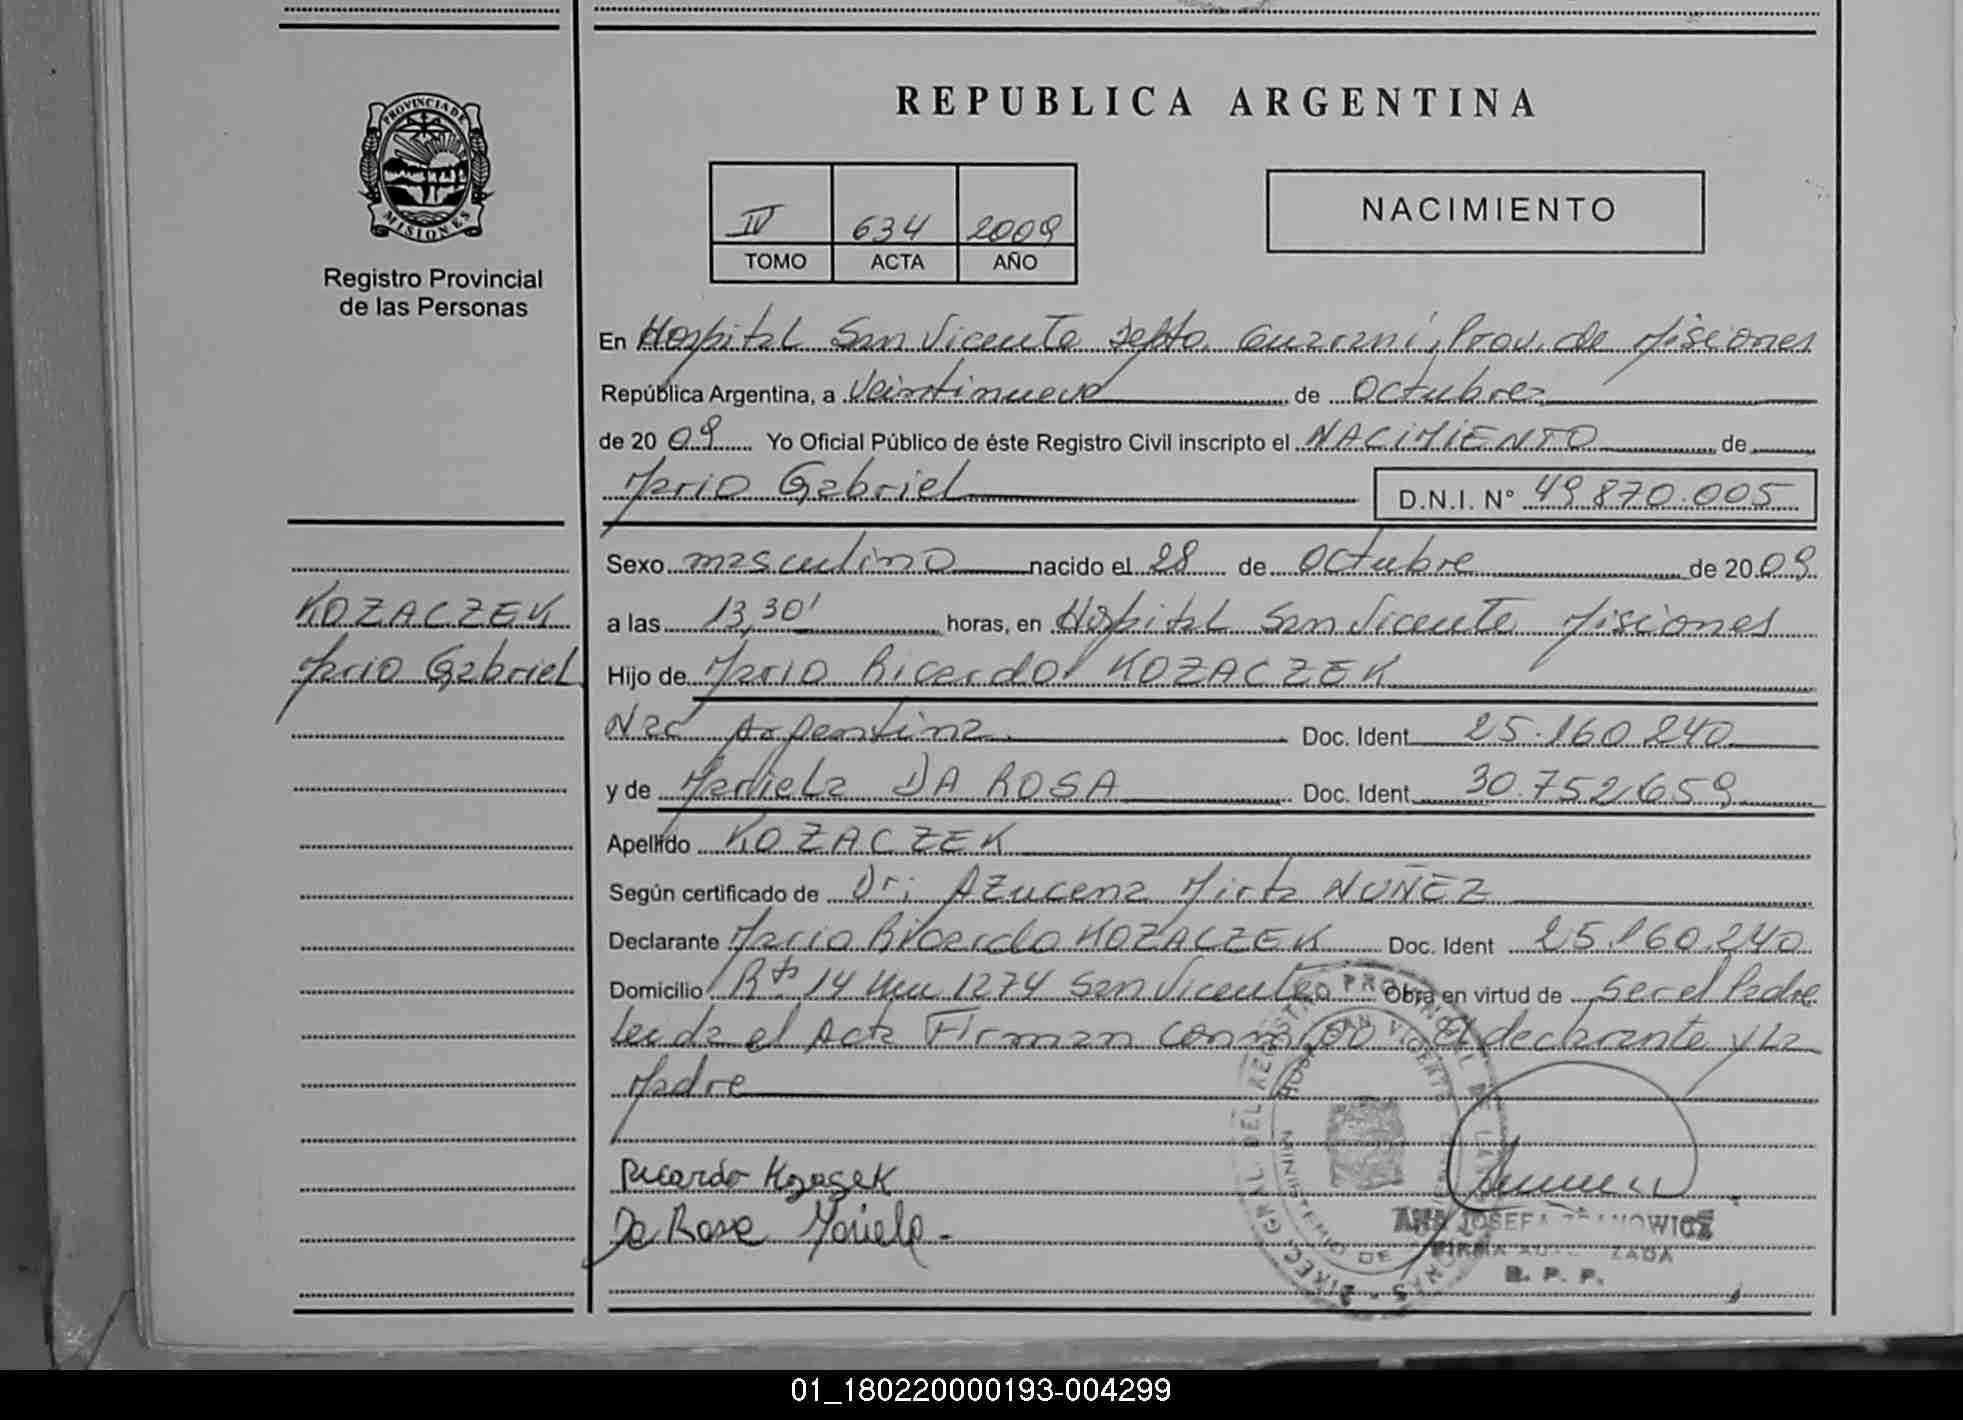 REPUBLICA ARGENTINA
PROVINCIA DE
MISIONES
Registro Provincial
de las Personas
IV 634 2009
TOMO ACTA AÑO
NACIMIENTO
En Hospital San Vicente Depto. Guarani, Prov. de Misiones
República Argentina, a Veintinueve de Octubre
de 2009 Yo Oficial Público de éste Registro Civil inscripto el NACIMIENTO de
Mario Gabriel D.N.I. N° 49.870.005
Sexo masculino nacido el 28 de Octubre de 2009
KOZACZEK
Mario Gabriel
a las 13,30' horas, en Hospital San Vicente Misiones
Hijo de Mario Ricardo KOZACZEK
Nac Argentina Doc. Ident 25.160.240
y de Mariela DA ROSA Doc. Ident 30.752.659
Apellido KOZACZEK
Según certificado de Dr: Azucena Mirta NUÑEZ
Declarante Mario Ricardo KOZACZEK Doc. Ident 25.160.240
Domicilio Rta 14 Km 1274 San Vicente Obra en virtud de ser el Padre
leida el Acta Firman conmigo El declarante y La
Madre
Ricardo
Da Rosa Mariela
ANA JOSEFA
FIRMA AUTORIZADA
R. P. P.
01_180220000193-004299